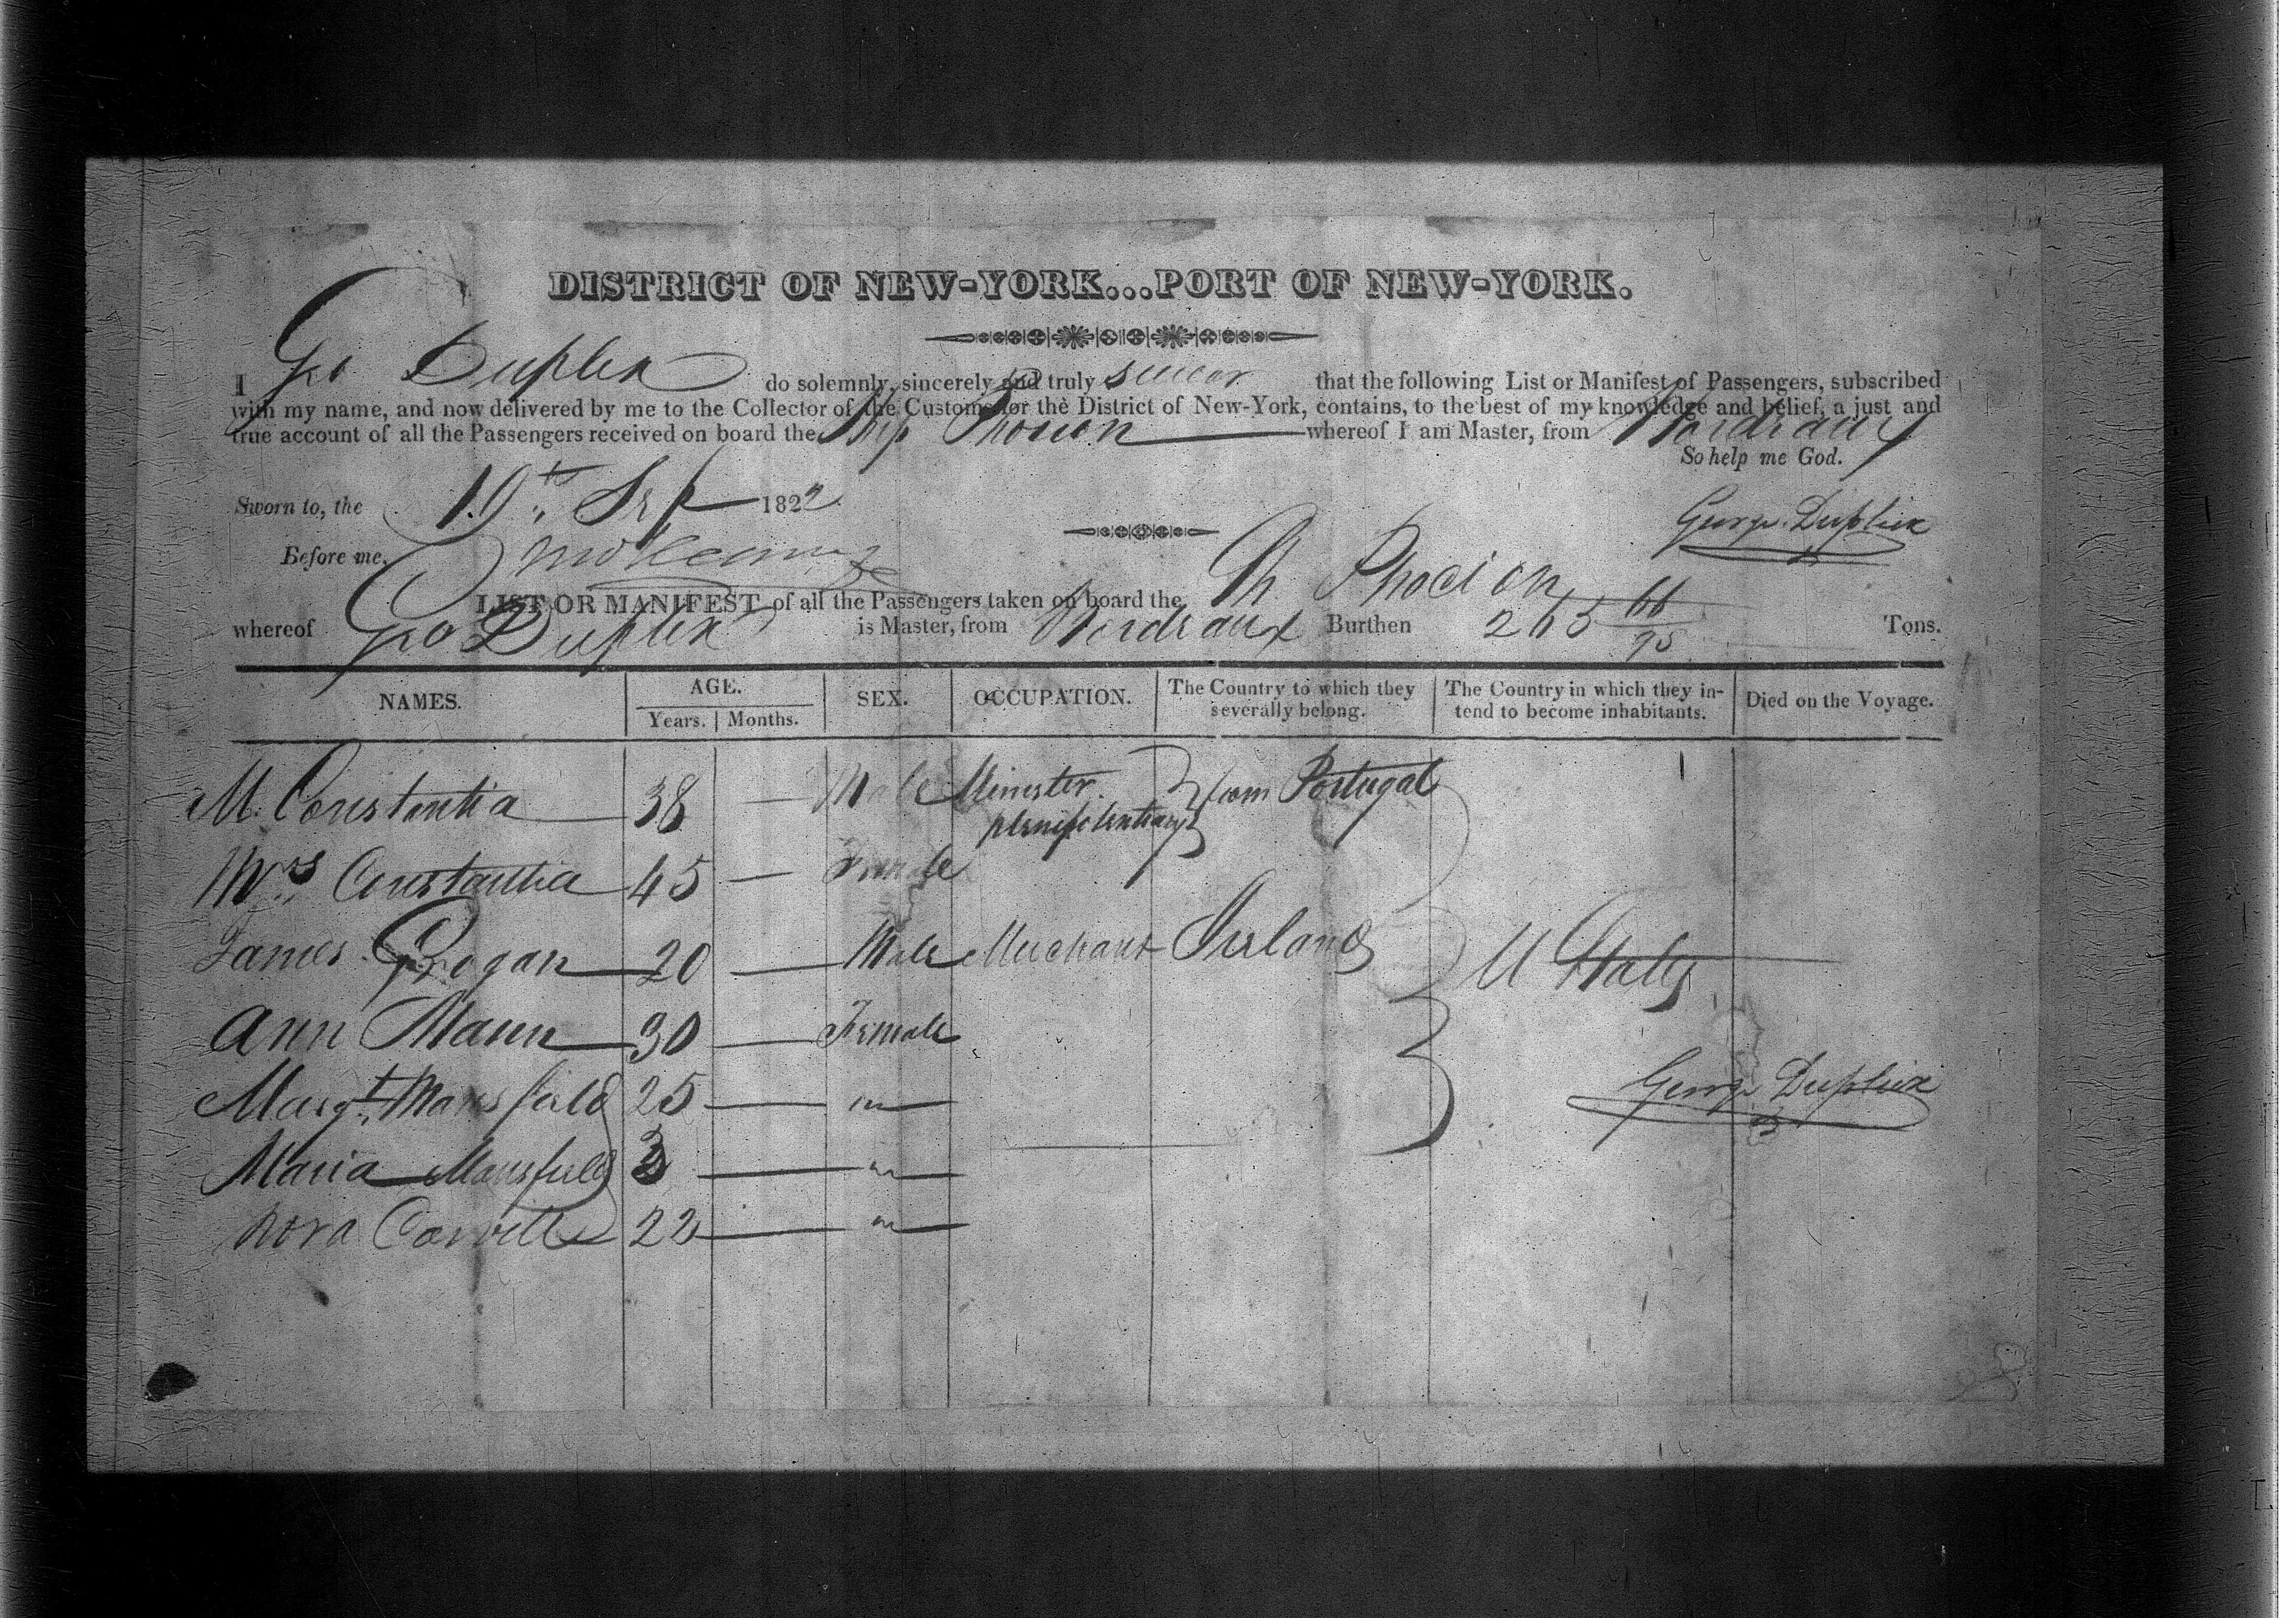 DISTRICT OF NEW-YORK...PORT OF NEW-YORK.
I Geo Duplex do solemnly, sincerely and truly swear that the following List or Manifest of Passengers, subscribed
with my name, and now delivered by me to the Collector of the Customs for the District of New-York, contains, to the best of my knowledge and belief, a just and
true account of all the Passengers received on board the Ship Phocion whereof I am Master, from Bordeaux
So help me God.
Sworn to, the 19th Sep 1822
George Duplex
Before me,
LIST OR MANIFEST of all the Passengers taken on board the Sh Phocion
whereof Geo Duplex is Master, from Bordeaux Burthen 265 66/95 Tons.
NAMES. AGE. Years. Months. SEX. OCCUPATION. The Country to which they severally belong. The Country in which they intend to become inhabitants. Died on the Voyage.
M. Constantia 38 — Male Minister plenipotentiary from Portugal
Mrs Constantia 45 — Female
James Grogan 20 — Male Merchant Ireland U States
Ann Mann 30 — Female
Margt Mansfield 25 — "
George Duplex
Maria Mansfield 3 — "
Nora 22 — "